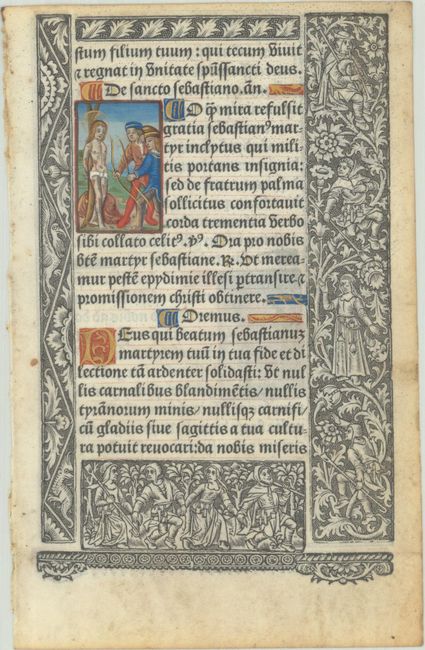 stum filium tuum: qui tecum Vivit
⁊ regnat in Vnitate spūssancti deus.
De sancto sebastiano. añ.
O q̄ʒ mira refulsit
gratia sebastianꝰ mar-
tyr inclytus qui mili-
tis portans insignia:
sed de fratrum palma
sollicitus confortauit
corda trementia Verbo
sibi collato celitꝰ. ℣ꝰ. Ora pro nobis
btē martyr sebastiane. ℟. Ut merea-
mur pestē epydimie illesi ptransire ⁊
promissionem christi obtinere.
Oremus.
DEus qui beatum sebastianuʒ
martyrem tuū in tua fide et di
lectione tā ardenter solidasti: Vt nul
lis carnalibus blandimētis/ nullis
tyrānorum minis/ nullisqʒ carnifi/
cū gladiis siue sagittis a tua cultu-
ra potuit reuocari: da nobis miseris